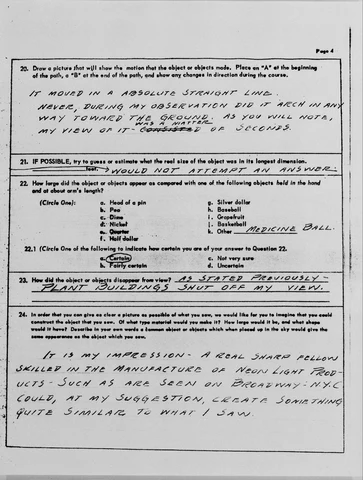 Page 4
20. Draw a picture that will show the motion that the object or objects made. Place an "A" at the beginning
of the path, a "B" at the end of the path, and show any changes in direction during the course.
IT MOVED IN A ABSOLUTE STRAIGHT LINE.
NEVER, DURING MY OBSERVATION DID IT ARCH IN ANY
WAY TOWARD THE GROUND. AS YOU WILL NOTE,
WAS A MATTER
MY VIEW OF IT- CONSISTED OF SECONDS.
21. IF POSSIBLE, try to guess or estimate what the real size of the object was in its longest dimension.
feet. WOULD NOT ATTEMPT AN ANSWER.
22. How large did the object or objects appear as compared with one of the following objects held in the hand
and at about arm's length?
(Circle One): a. Head of a pin g. Silver dollar
b. Pea h. Baseball
c. Dime i. Grapefruit
d. Nickel j. Basketball
e. Quarter k. Other MEDICINE BALL.
f. Half dollar
22.1 (Circle One of the following to indicate how certain you are of your answer to Question 22.
a. Certain c. Not very sure
b. Fairly certain d. Uncertain
23. How did the object or objects disappear from view? AS STATED PREVIOUSLY-
PLANT BUILDINGS SHUT OFF MY VIEW.
24. In order that you can give as clear a picture as possible of what you saw, we would like for you to imagine that you could
construct the object that you saw. Of what type material would you make it? How large would it be, and what shape
would it have? Describe in your own words a common object or objects which when placed up in the sky would give the
same appearance as the object which you saw.
IT IS MY IMPRESSION- A REAL SHARP FELLOW
SKILLED IN THE MANUFACTURE OF NEON LIGHT PROD-
UCTS- SUCH AS ARE SEEN ON BROADWAY- N.Y.C.
COULD, AT MY SUGGESTION, CREATE SOMETHING
QUITE SIMILAR TO WHAT I SAW.